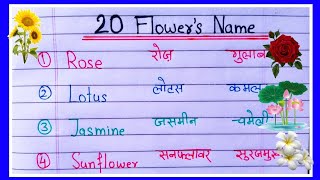 20 Flower's Name
① Rose रोज़ गुलाब
② Lotus लोटस कमल
③ Jasmine जसमीन चमेली
④ Sunflower सनफ्लावर